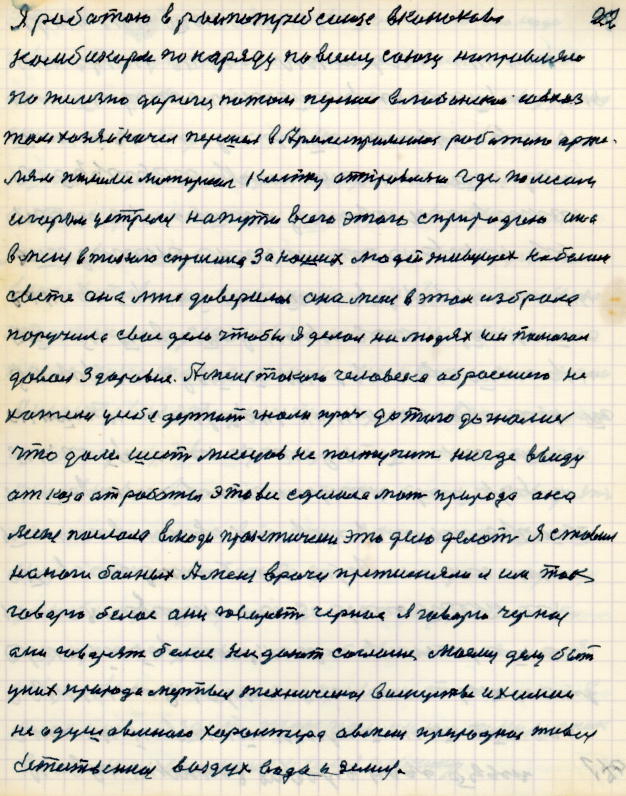 Я работаю в райпотребсоюзе в Конокова 22
комбикорм по наряду по всему союзу направляю
по железно дорогу потом перешел в Лабинский совхоз
там хозяйничел перешел в Армепромсоюз работаю
посылали материал Клетку отправлял где по лесам
на пути всего этого с природою она
в меня в такого спросила За наших людей живущих на белом
свете она мне доверилас она меня в этом избрала
поручила свое дело чтобы я делал на людях им помогал
давал Здаровие. А меня такого человека аброшеного не
хотели у себя держат гнали прач до того догналис
что дали шест месяцов не поступит нигде ввиду
отказа от работы это все сделала мат природа она
меня послала в люди практически это дело делат Я ставил
на ноги болных А меня врачи притисняли я им так
говарю белое они говарят чернае я говарю чернае
они говарят белае Не дают согласие моему делу быт
у них природа мертвая техническая в искуства и химии
не одушевленого характера а в меня природная живая
естественая воздух вода и земля.